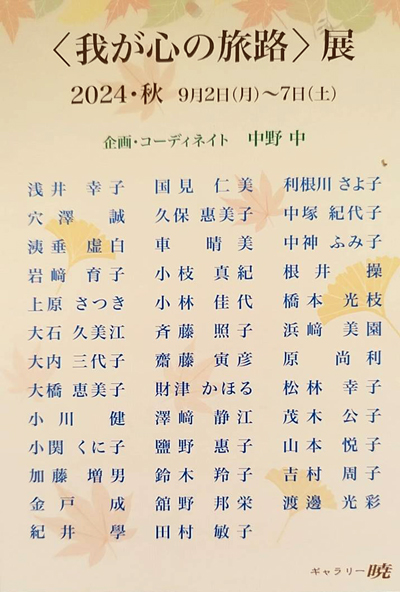 〈我が心の旅路〉展
2024・秋 9月2日(月)～7日(土)
企画・コーディネイト 中野 中
浅井 幸子 国見 仁美 利根川 さよ子
穴澤 誠 久保 恵美子 中塚 紀代子
洟垂 虚白 車 晴美 中神 ふみ子
岩﨑 育子 小枝 真紀 根井 操
上原 さつき 小林 佳代 橋本 光枝
大石 久美江 斉藤 照子 浜﨑 美園
大内 三代子 齋藤 寅彦 原 尚利
大橋 恵美子 財津 かほる 松林 幸子
小川 健 澤﨑 静江 茂木 公子
小関 くに子 鹽野 惠子 山本 悦子
加藤 増男 鈴木 羚子 吉村 周子
金戸 成 舘野 邦栄 渡邊 光彩
紀井 學 田村 敏子
ギャラリー暁